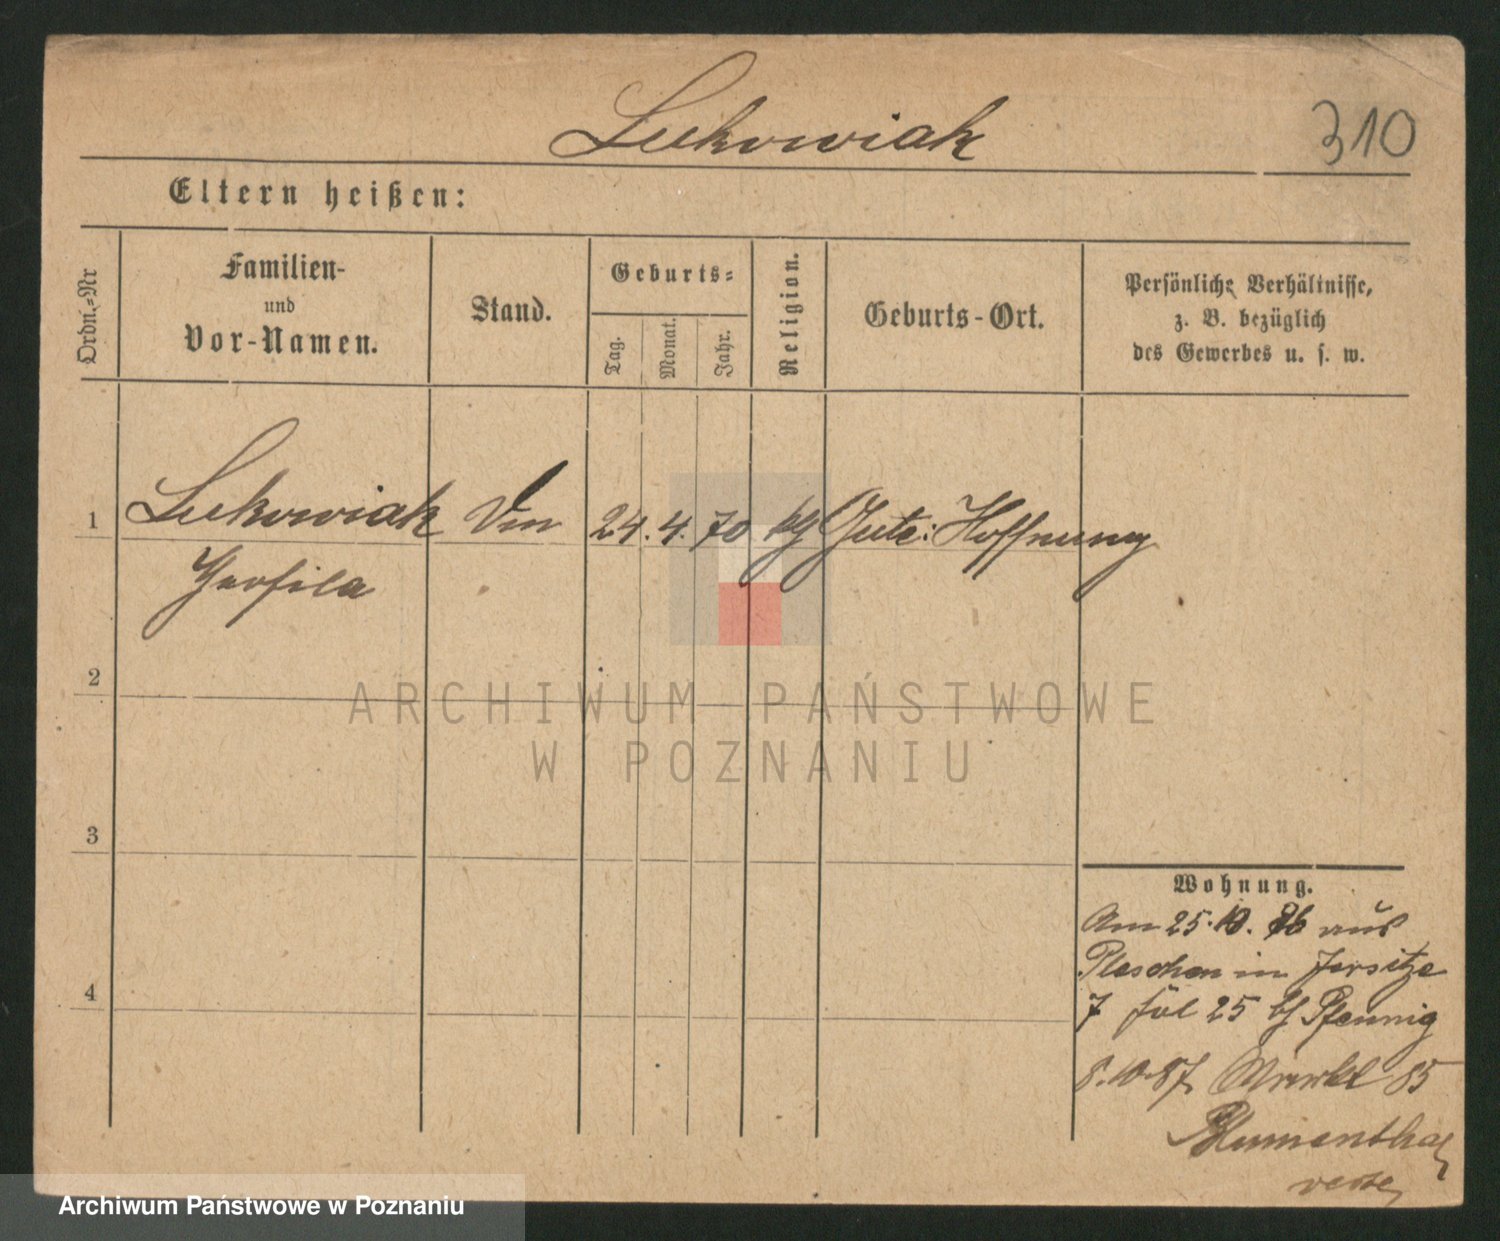 Lukowiak
310
Eltern heißen:
Ordn.-Nr
Familien-
und
Vor-Namen.
Stand.
Geburts-
Tag.
Monat.
Jahr.
Religion.
Geburts-Ort.
Persönliche Verhältnisse,
z. B. bezüglich
des Gewerbes u. s. w.
1
Lukowiak
24. 4. 70
Gute Hoffnung
2
3
4
ARCHIWUM PAŃSTWOWE
W POZNANIU
Wohnung.
Am 25. 10. 86 aus
Pleschen in Jersitze
7 25 Pfennig
8.10.87 Markt 85
Blumenthal
Archiwum Państwowe w Poznaniu